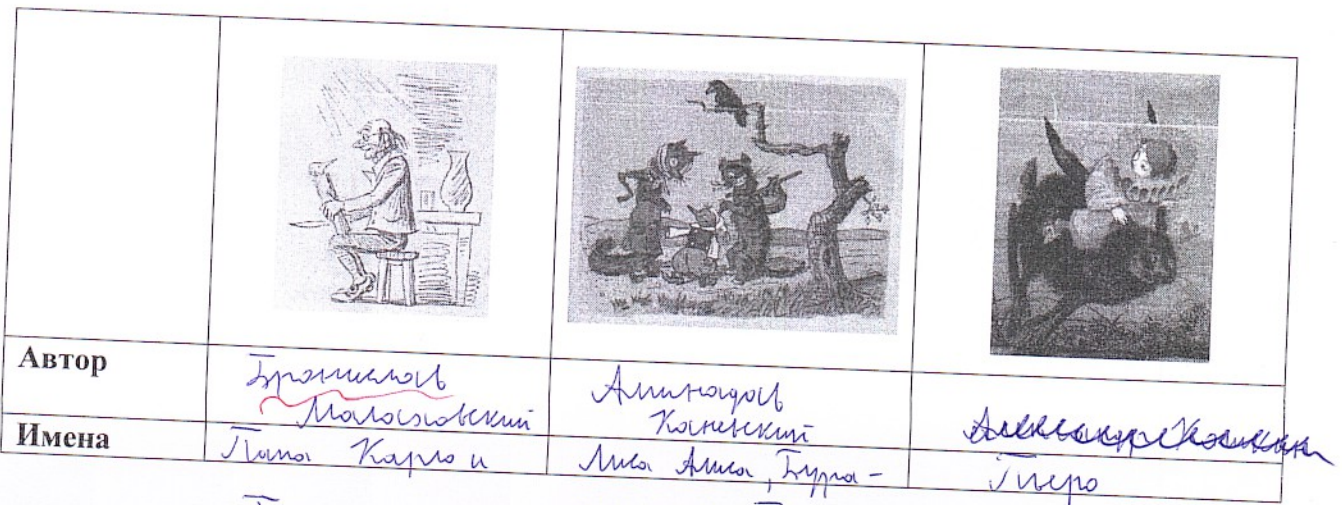 Автор
Бронислав
Малаховский
Аминадав
Каневский
Имена
Папа Карло и
Лиса Алиса, Бура-
Пьеро